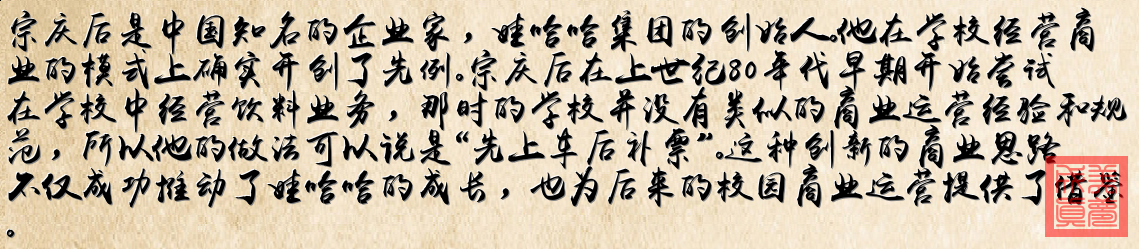 宗庆后是中国知名的企业家，娃哈哈集团的创始人。他在学校经营商
业的模式上确实开创了先例。宗庆后在上世纪80年代早期开始尝试
在学校中经营饮料业务，那时的学校并没有类似的商业运营经验和规
范，所以他的做法可以说是“先上车后补票”。这种创新的商业思路
不仅成功推动了娃哈哈的成长，也为后来的校园商业运营提供了借鉴
。